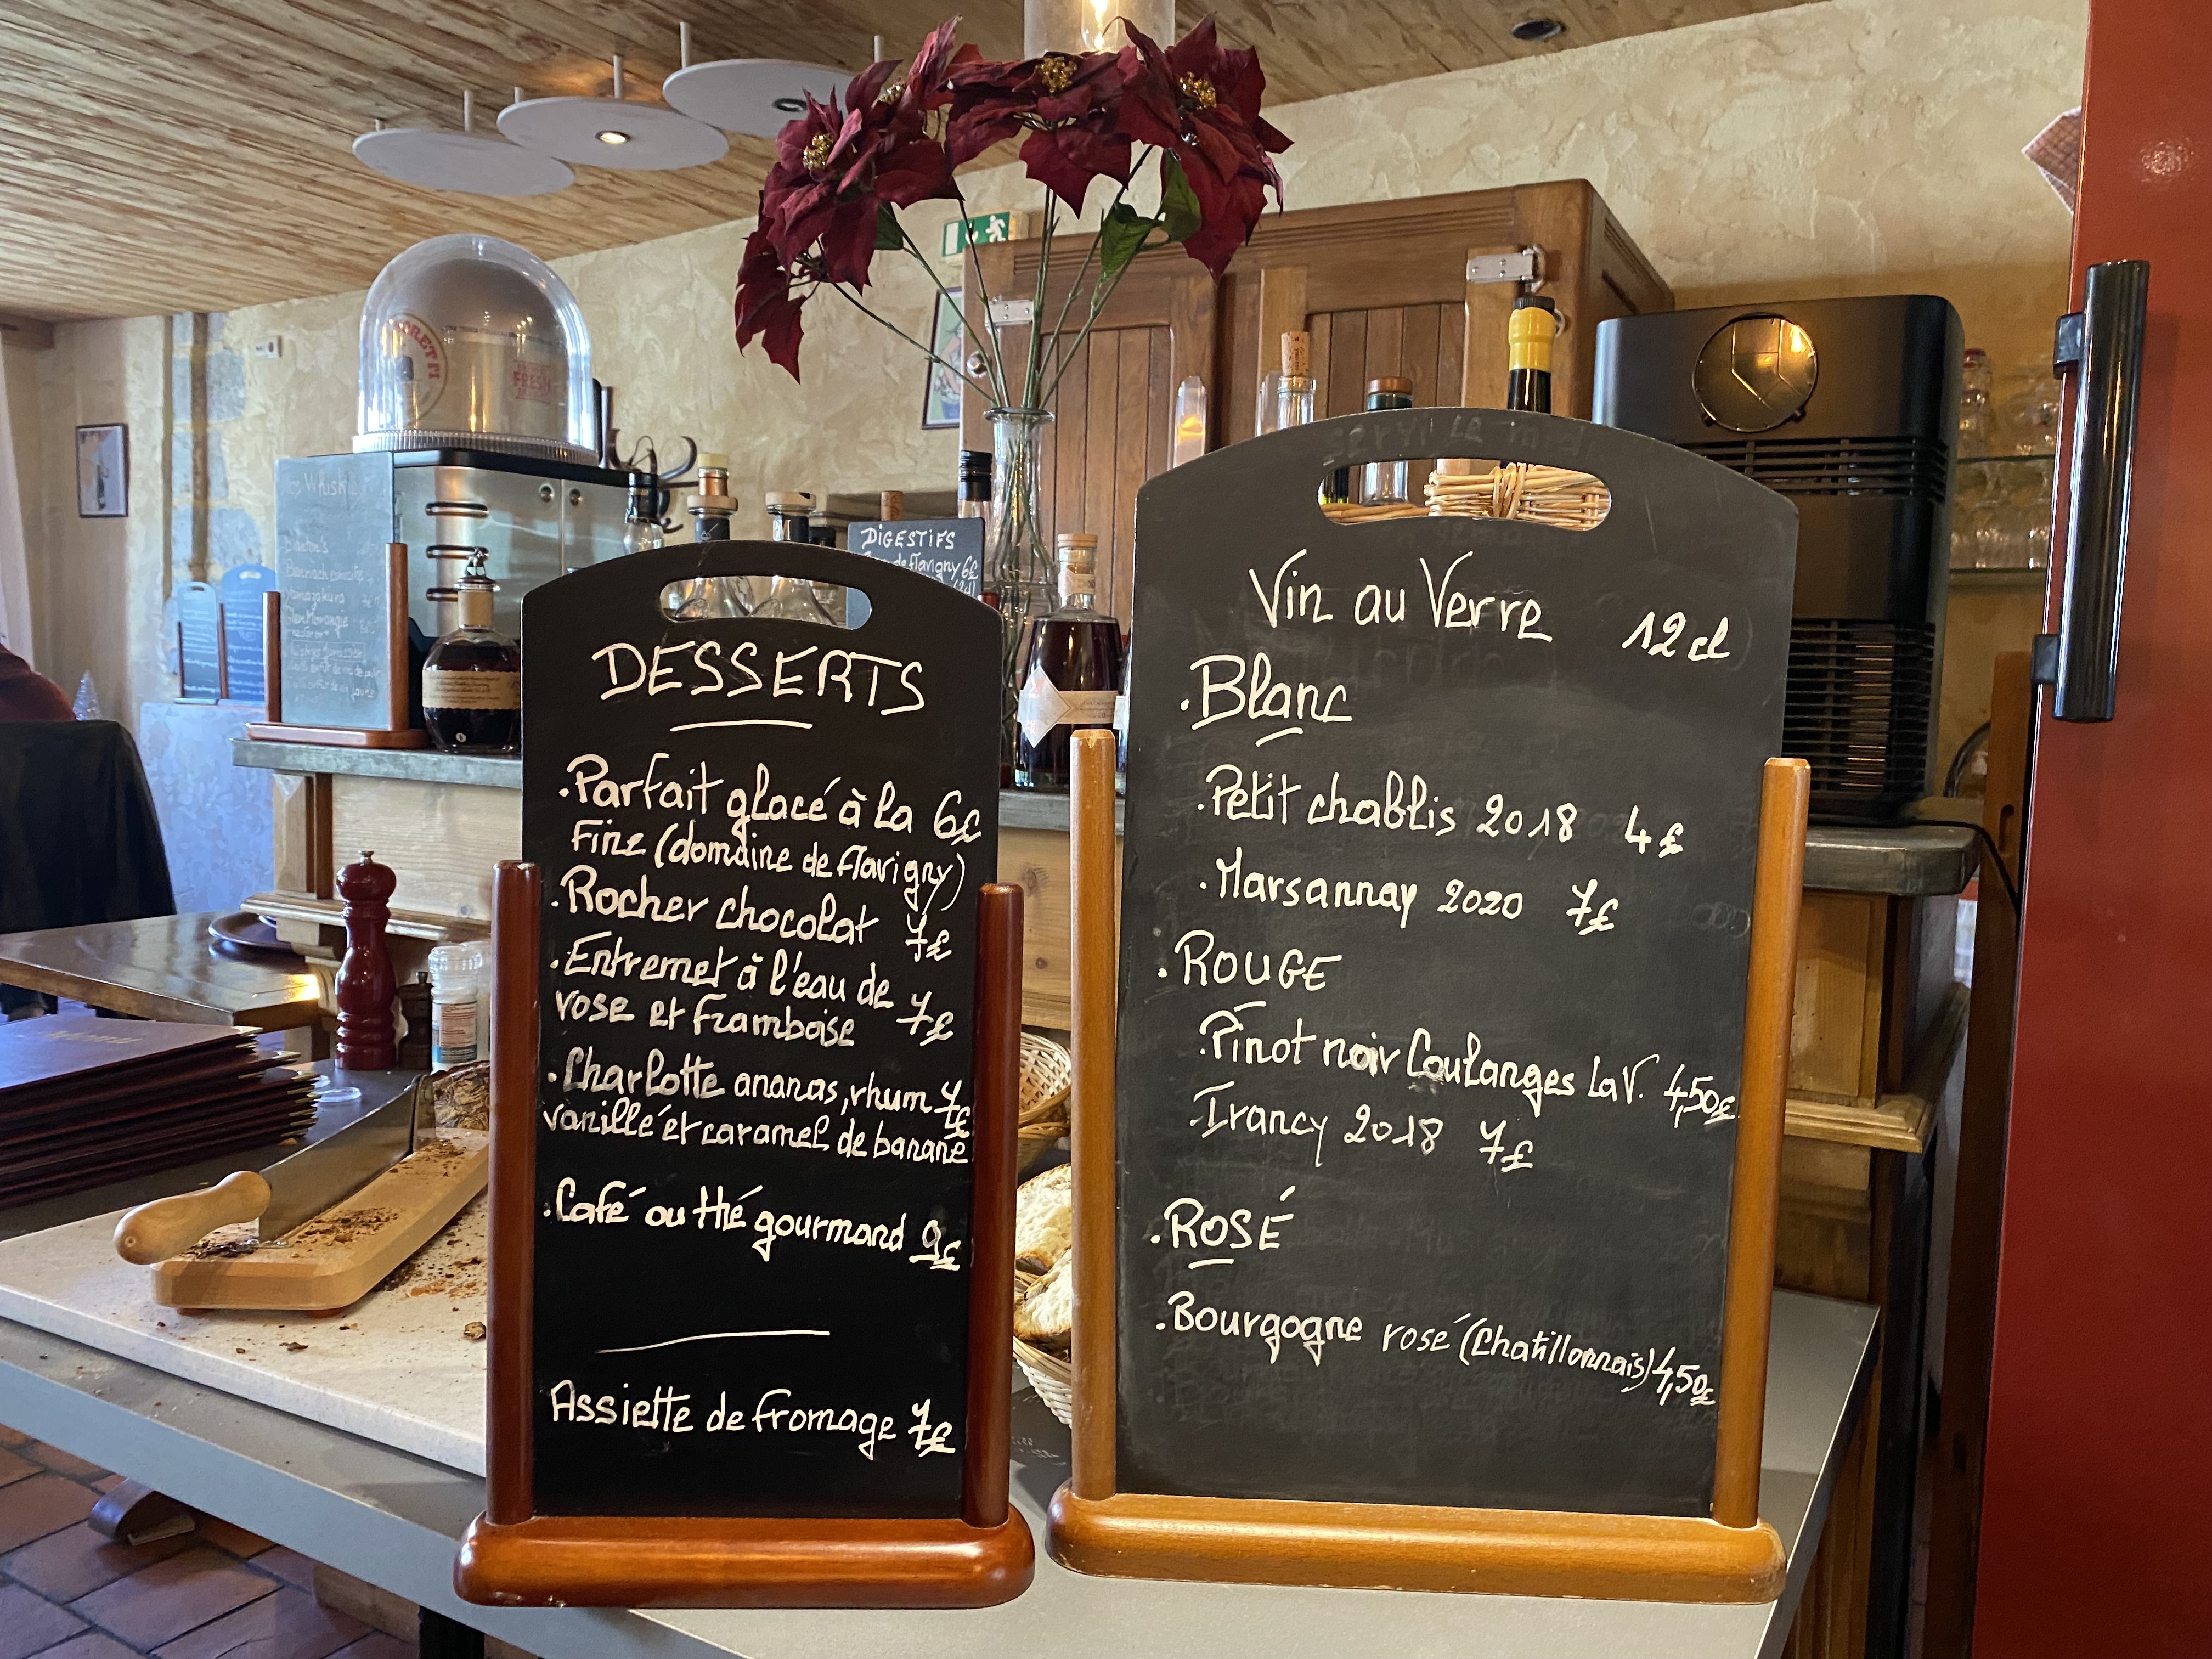 DESSERTS
.Parfait glacé à la 6€
Fine (domaine de Flavigny)
.Rocher chocolat 7€
.Entremet à l'eau de
rose et framboise 7€
.Charlotte ananas, rhum 7€
vanille et caramel de banane
.Café ou thé gourmand 9€
Assiette de fromage 7€
Vin au Verre 12cl
.Blanc
.Petit chablis 2018 4€
.Marsannay 2020 7€
.ROUGE
.Pinot noir Coulanges La V. 4,50€
.Irancy 2018 7€
.ROSÉ
.Bourgogne rosé (Chatillonnais) 4,50€
DIGESTIFS
de Flavigny 6€
Whiskie
Glen Morangie
FRESH
Menu